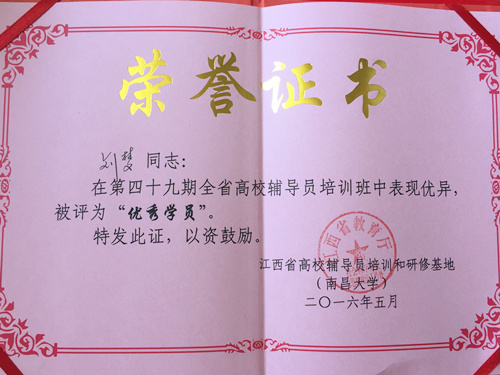 荣誉证书
刘 同志：
在第四十九期全省高校辅导员培训班中表现优异，
被评为“优秀学员”。
特发此证，以资鼓励。
江西省教育厅
江西省高校辅导员培训和研修基地
（南昌大学）
二〇一六年五月